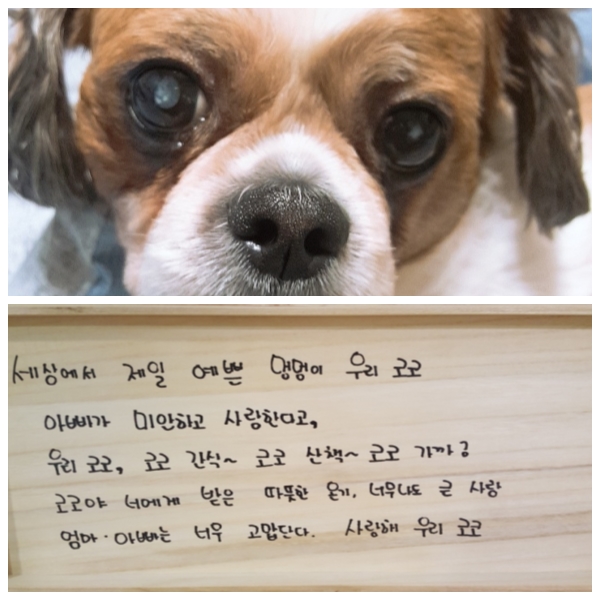 세상에서 제일 예쁜 멍멍이 우리 코코
아빠가 미안하고 사랑한다고,
우리 코코, 코코 간식~ 코코 산책~ 코코 가까?
코코야 너에게 받은 따뜻한 온기, 너무나도 큰 사랑
엄마·아빠는 너무 고맙단다. 사랑해 우리 코코